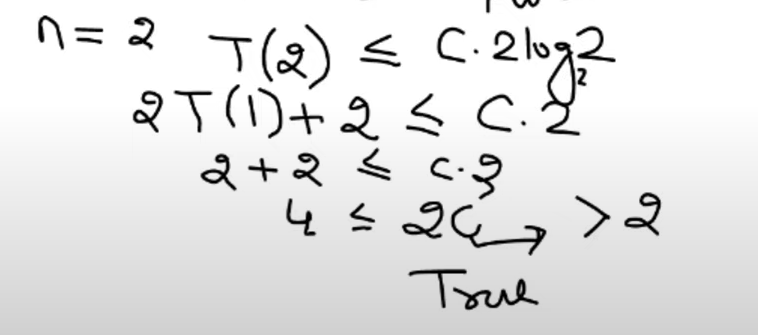 n = 2 T(2) ≤ C. 2 log₂2
2T(1) + 2 ≤ C. 2
2 + 2 ≤ c. 2
4 ≤ 2C → > 2
True